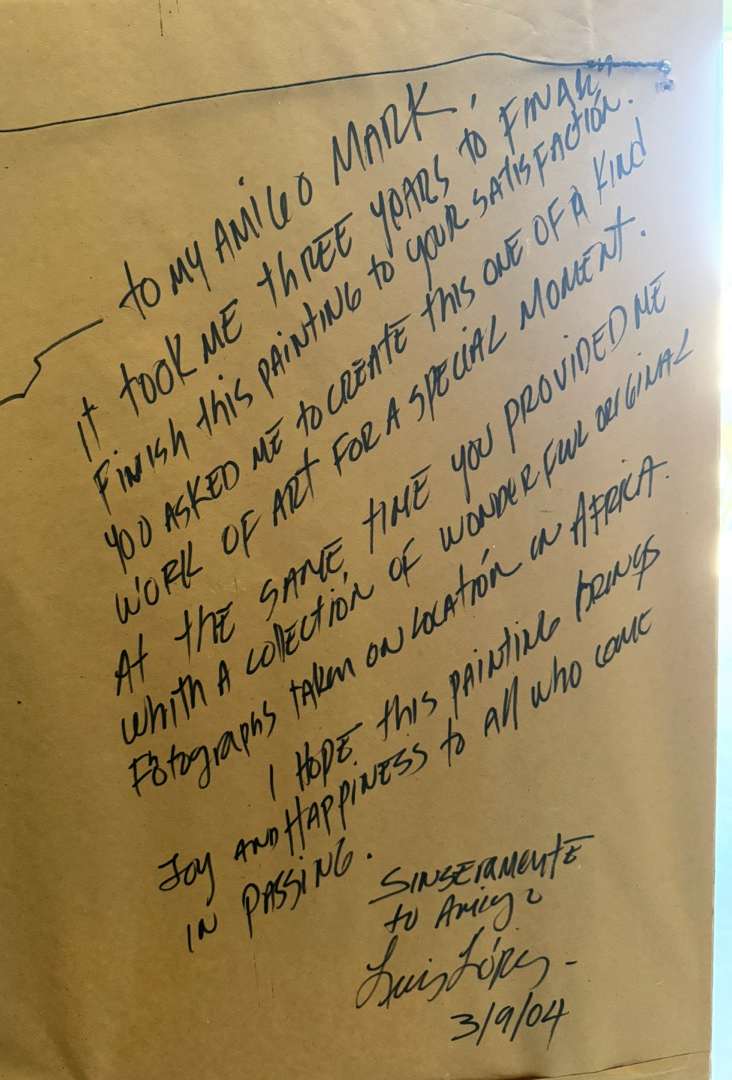 to MY AMIGO MARK,
It took ME thREE YEARS to FINALLY
FINISH this PAINTING to YOUR SATISFACTIóN.
YOU ASKED ME to CREATE this ONE OF A KIND
WORK OF ART FOR A SPECIAL MOMENT.
At tHE SAME tIME YOU PROVIDED ME
Whith A COllECtION OF WONDERFUL ORIGINAL
Fótographs taken ON LOCATIóN IN AFRICA.
I HOPE this PAINTING BRINGS
JOY AND HAPPINESS to All who come
IN PASSING.
SINSERAMENTE
tu Amigo
Luis López
3/9/04